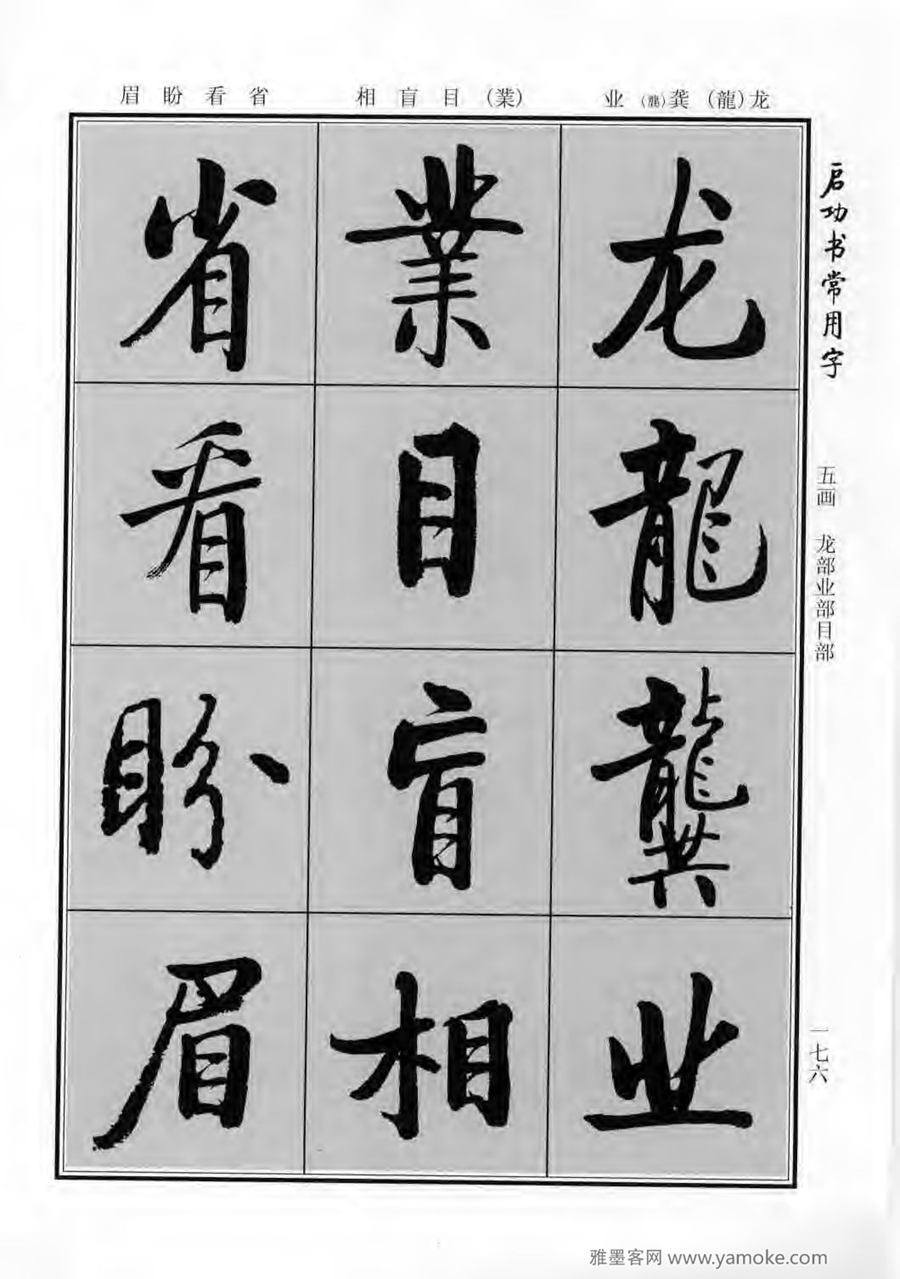 龙(龍) 龚(龔) 业
(業) 目 盲 相
省 看 盼 眉
启功书常用字
五画 龙部业部目部
龙
龍
龔
业
業
目
盲
相
省
看
盼
眉
一七六
雅墨客网 www.yamoke.com